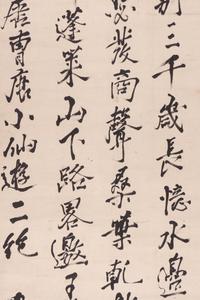 別三千歲長憶水邊
發商聲桑葉乾
蓬萊山下路略邀王
唐曹唐小仙遊二絕